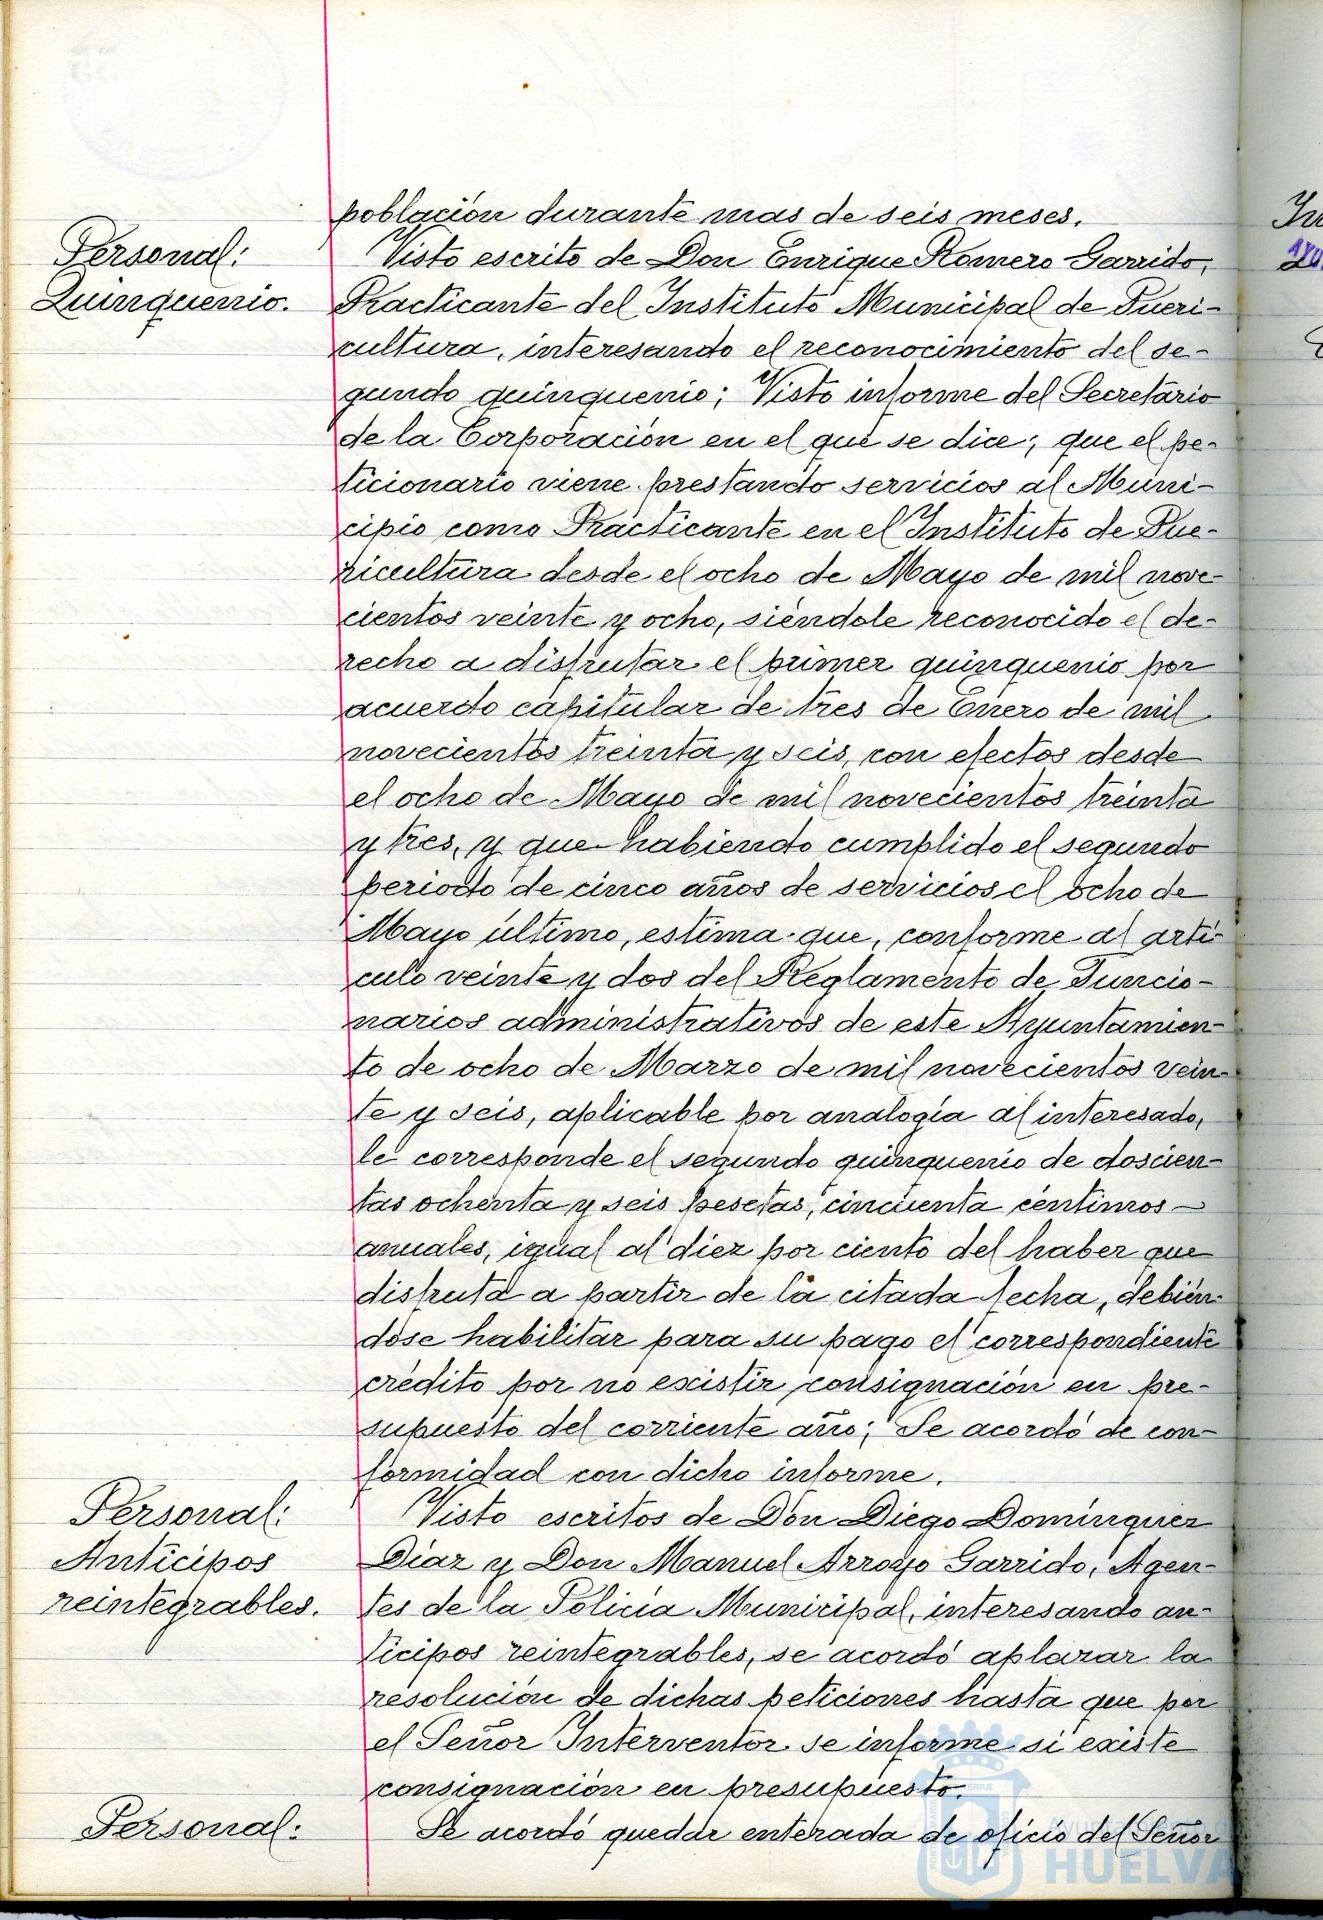 población durante mas de seis meses.
Personal:
Quinquenio.
Visto escrito de Don Enrique Romero Garrido,
Practicante del Instituto Municipal de Pueri-
cultura, interesando el reconocimiento del se-
gundo quinquenio; Visto informe del Secretario
de la Corporación en el que se dice; que el pe-
ticionario viene prestando servicios al Muni-
cipio como Practicante en el Instituto de Pue-
ricultura desde el ocho de Mayo de mil nove-
cientos veinte y ocho, siéndole reconocido el de-
recho a disfrutar el primer quinquenio por
acuerdo capitular de tres de Enero de mil
novecientos treinta y seis, con efectos desde
el ocho de Mayo de mil novecientos treinta
y tres, y que habiendo cumplido el segundo
periodo de cinco años de servicios el ocho de
Mayo último, estima que, conforme al artí-
culo veinte y dos del Reglamento de Funcio-
narios administrativos de este Ayuntamien-
to de ocho de Marzo de mil novecientos vein-
te y seis, aplicable por analogía al interesado,
le corresponde el segundo quinquenio de doscien-
tas ochenta y seis pesetas, cincuenta céntimos
anuales, igual al diez por ciento del haber que
disfruta a partir de la citada fecha, debién-
dose habilitar para su pago el correspondiente
crédito por no existir consignación en pre-
supuesto del corriente año; Se acordó de con-
formidad con dicho informe.
Personal:
Anticipos
reintegrables.
Visto escritos de Don Diego Domínguez
Díaz y Don Manuel Arroyo Garrido, Agen-
tes de la Policía Municipal, interesando an-
ticipos reintegrables, se acordó aplazar la
resolución de dichas peticiones hasta que por
el Señor Interventor se informe si existe
consignación en presupuesto.
Personal:
Se acordó quedar enterada de oficio del Señor
HUELVA